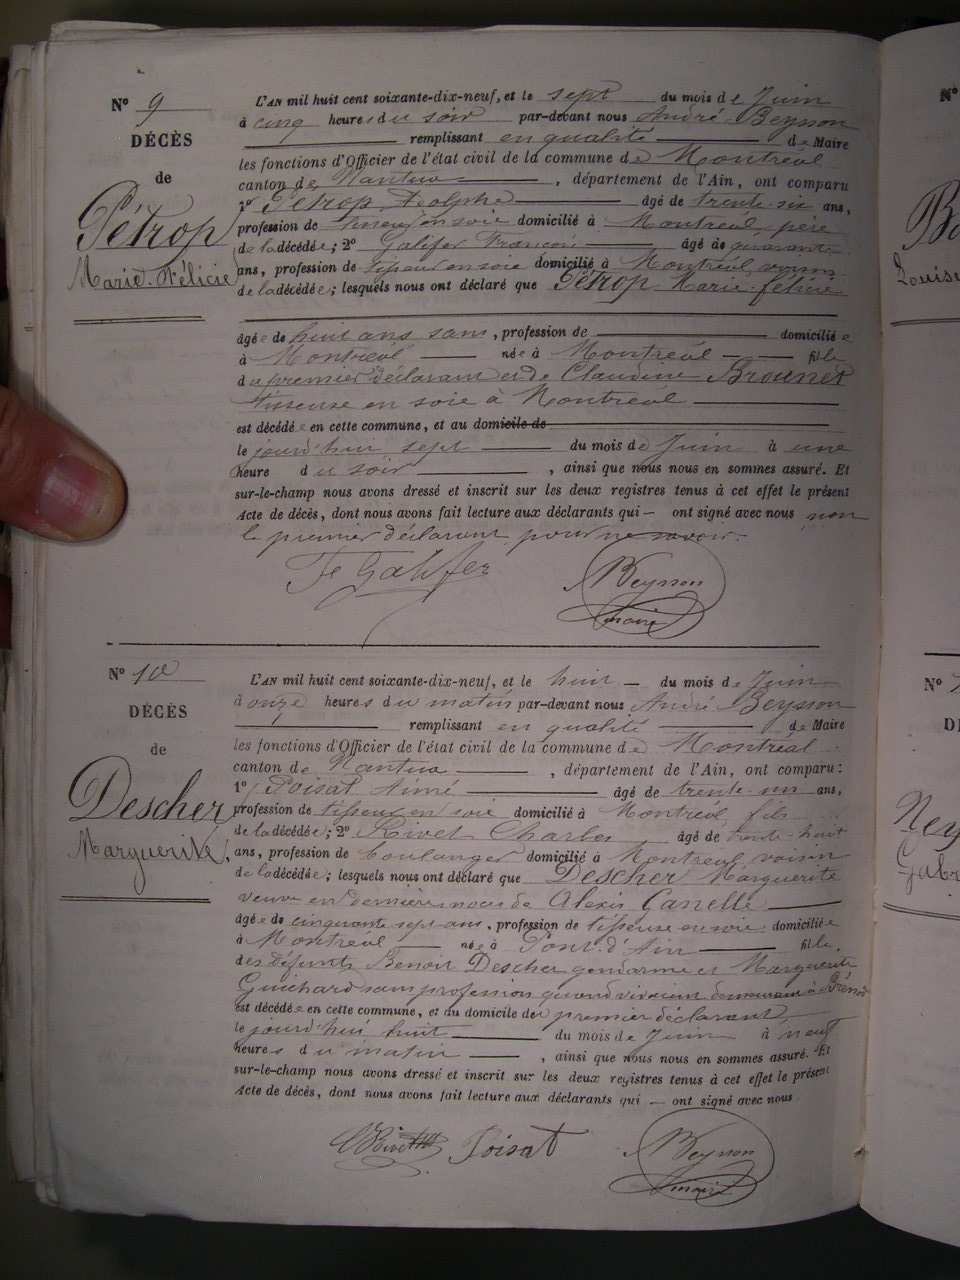 N° 9
DÉCÈS
de
Pétrop
Marie Félicie
L'AN mil huit cent soixante-dix-neuf, et le sept du mois de Juin
à cinq heures du soir par-devant nous André Beysson
remplissant en qualité de Maire
les fonctions d'Officier de l'état civil de la commune de Montréal
canton de Nantua, département de l'Ain, ont comparu
1° Pétrop Adolphe âgé de trente-six ans,
profession de tisseur en soie domicilié à Montréal, père
de la décédée; 2° Galifer François âgé de quarante
ans, profession de tisseur en soie domicilié à Montréal, voisin
de la décédée; lesquels nous ont déclaré que Pétrop Marie félicie
âgée de huit ans sans, profession de domiciliée
à Montréal née à Montréal fille
du premier déclarant et de Claudine Brounet
tisseuse en soie à Montréal
est décédée en cette commune, et au domicile de
le jourd'hui sept du mois de Juin à une
heure du soir, ainsi que nous nous en sommes assuré. Et
sur-le-champ nous avons dressé et inscrit sur les deux registres tenus à cet effet le présent
Acte de décès, dont nous avons fait lecture aux déclarants qui — ont signé avec nous non
le premier déclarant pour ne savoir.
Fs Galifer Beysson
maire
N° 10
DÉCÈS
de
Descher
Marguerite,
L'AN mil huit cent soixante-dix-neuf, et le huit du mois de Juin
à onze heures du matin par-devant nous André Beysson
remplissant en qualité de Maire
les fonctions d'Officier de l'état civil de la commune de Montréal
canton de Nantua, département de l'Ain, ont comparu:
1° Poisat Aimé âgé de trente-un ans,
profession de tisseur en soie domicilié à Montréal fils
de la décédée; 2° Rivet Charles âgé de trente-huit
ans, profession de boulanger domicilié à Montréal, voisin
de la décédée; lesquels nous ont déclaré que Descher Marguerite
veuve en dernières noces de Alexis Ganelle
âgée de cinquante sept ans, profession de tisseuse en soie domiciliée
à Montréal née à Pont-d'Ain fille
des défunts Benoit Descher gendarme et Marguerite
Guichard sans profession quand vivaient demeurant à Brénod
est décédée en cette commune, et au domicile du premier déclarant,
le jourd'hui huit du mois de Juin à neuf
heures du matin, ainsi que nous nous en sommes assuré. Et
sur-le-champ nous avons dressé et inscrit sur les deux registres tenus à cet effet le présent
Acte de décès, dont nous avons fait lecture aux déclarants qui — ont signé avec nous
Rivet Poisat Beysson
maire
N°
Louise
N°